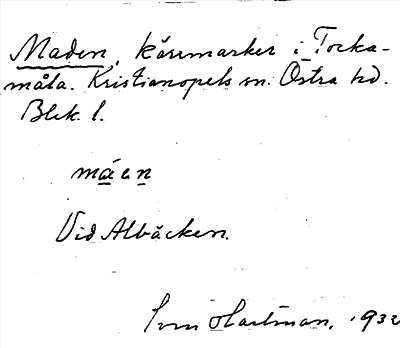 Maden, kärrmarker i Tocka-
måla. Kristianopels sn. Östra hd.
Blek. l.
máen
Vid Albäcken.
Sven Hartman, 1932